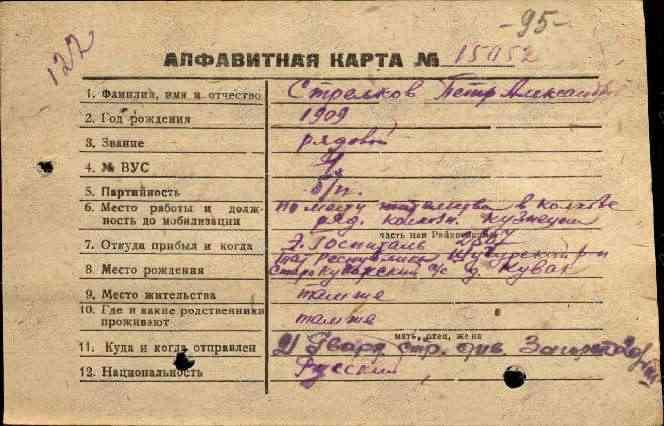 -95-
122
АЛФАВИТНАЯ КАРТА № 15952
1. Фамилия, имя и отчество Стрелков Петр Александр
2. Год рождения 1909
3. Звание рядовой
4. № ВУС
5. Партийность б/п.
6. Место работы и долж- По месту в колхозе
ность до мобилизации ряд. колхоз.
часть или Райвоенкомат
7. Откуда прибыл и когда Э. Госпиталь
Тат Республика р-н
8. Место рождения с/с д.
9. Место жительства там же
10. Где и какие родственники
проживают там же
мать, отец, жена
11. Куда и когда отправлен 21 Гвард стр. див.
12. Национальность Русский